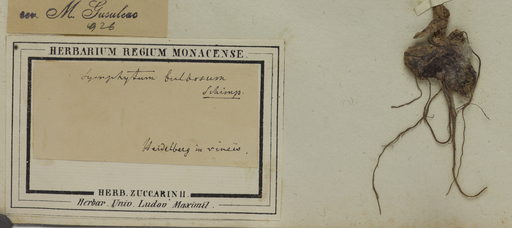 M. Gusuleac
926
HERBARIUM REGIUM MONACENSE.
Symphytum bulbosum
Schimp.
Heidelberg in vineis.
HERB. ZUCCARINII
Herbar. Univ. Ludov. Maximil.